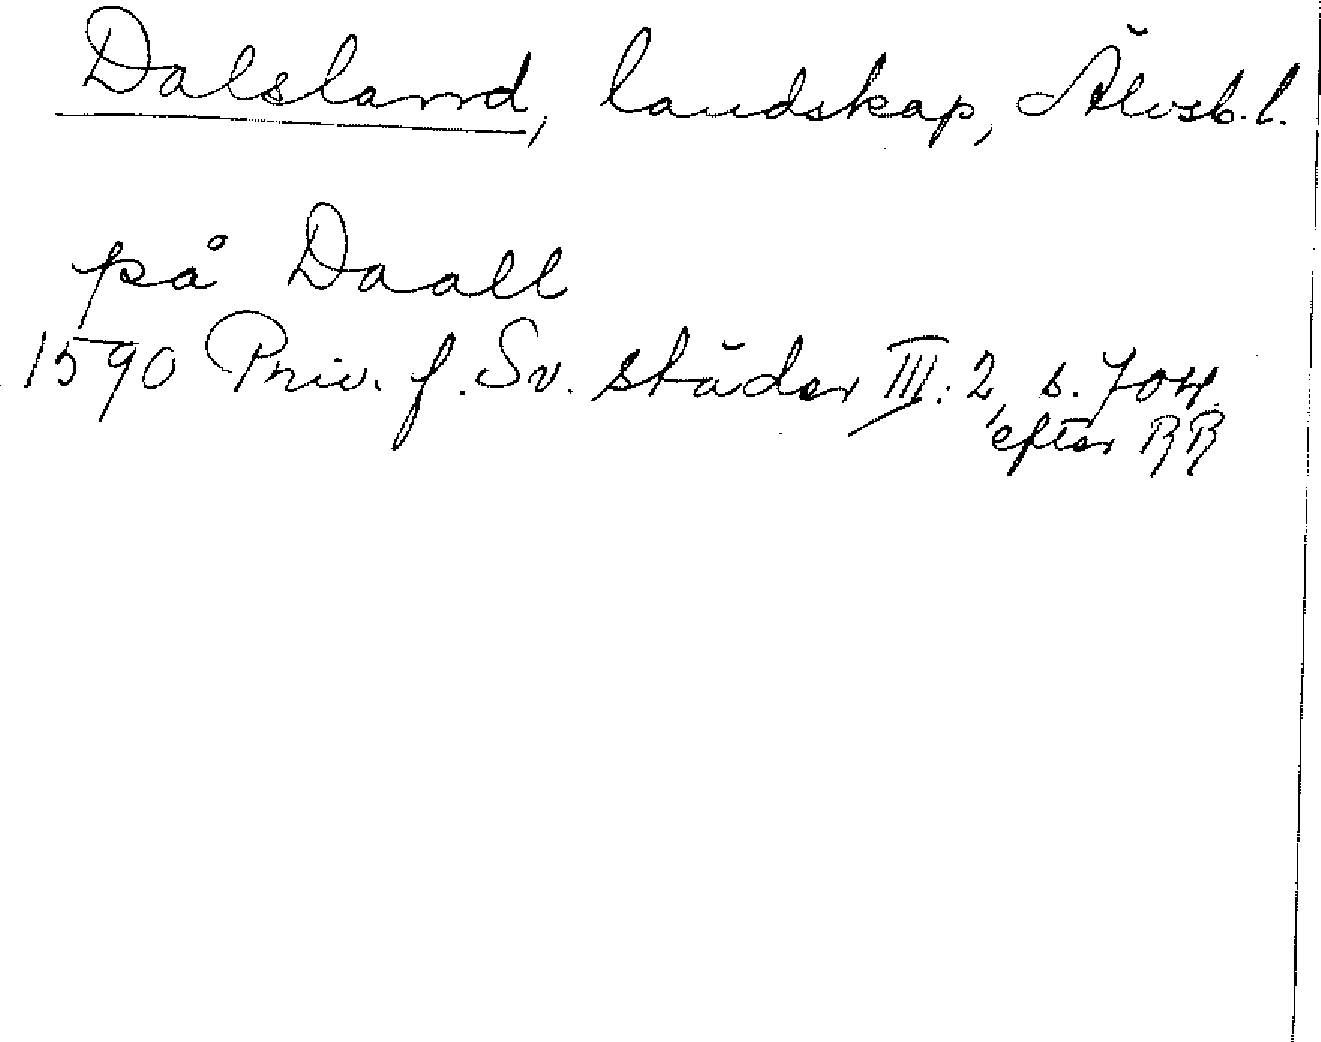 Dalsland, landskap, Älvsb. l.
på Daall
1590 Priv. f. Sv. städer III: 2, s. 704.
efter RR